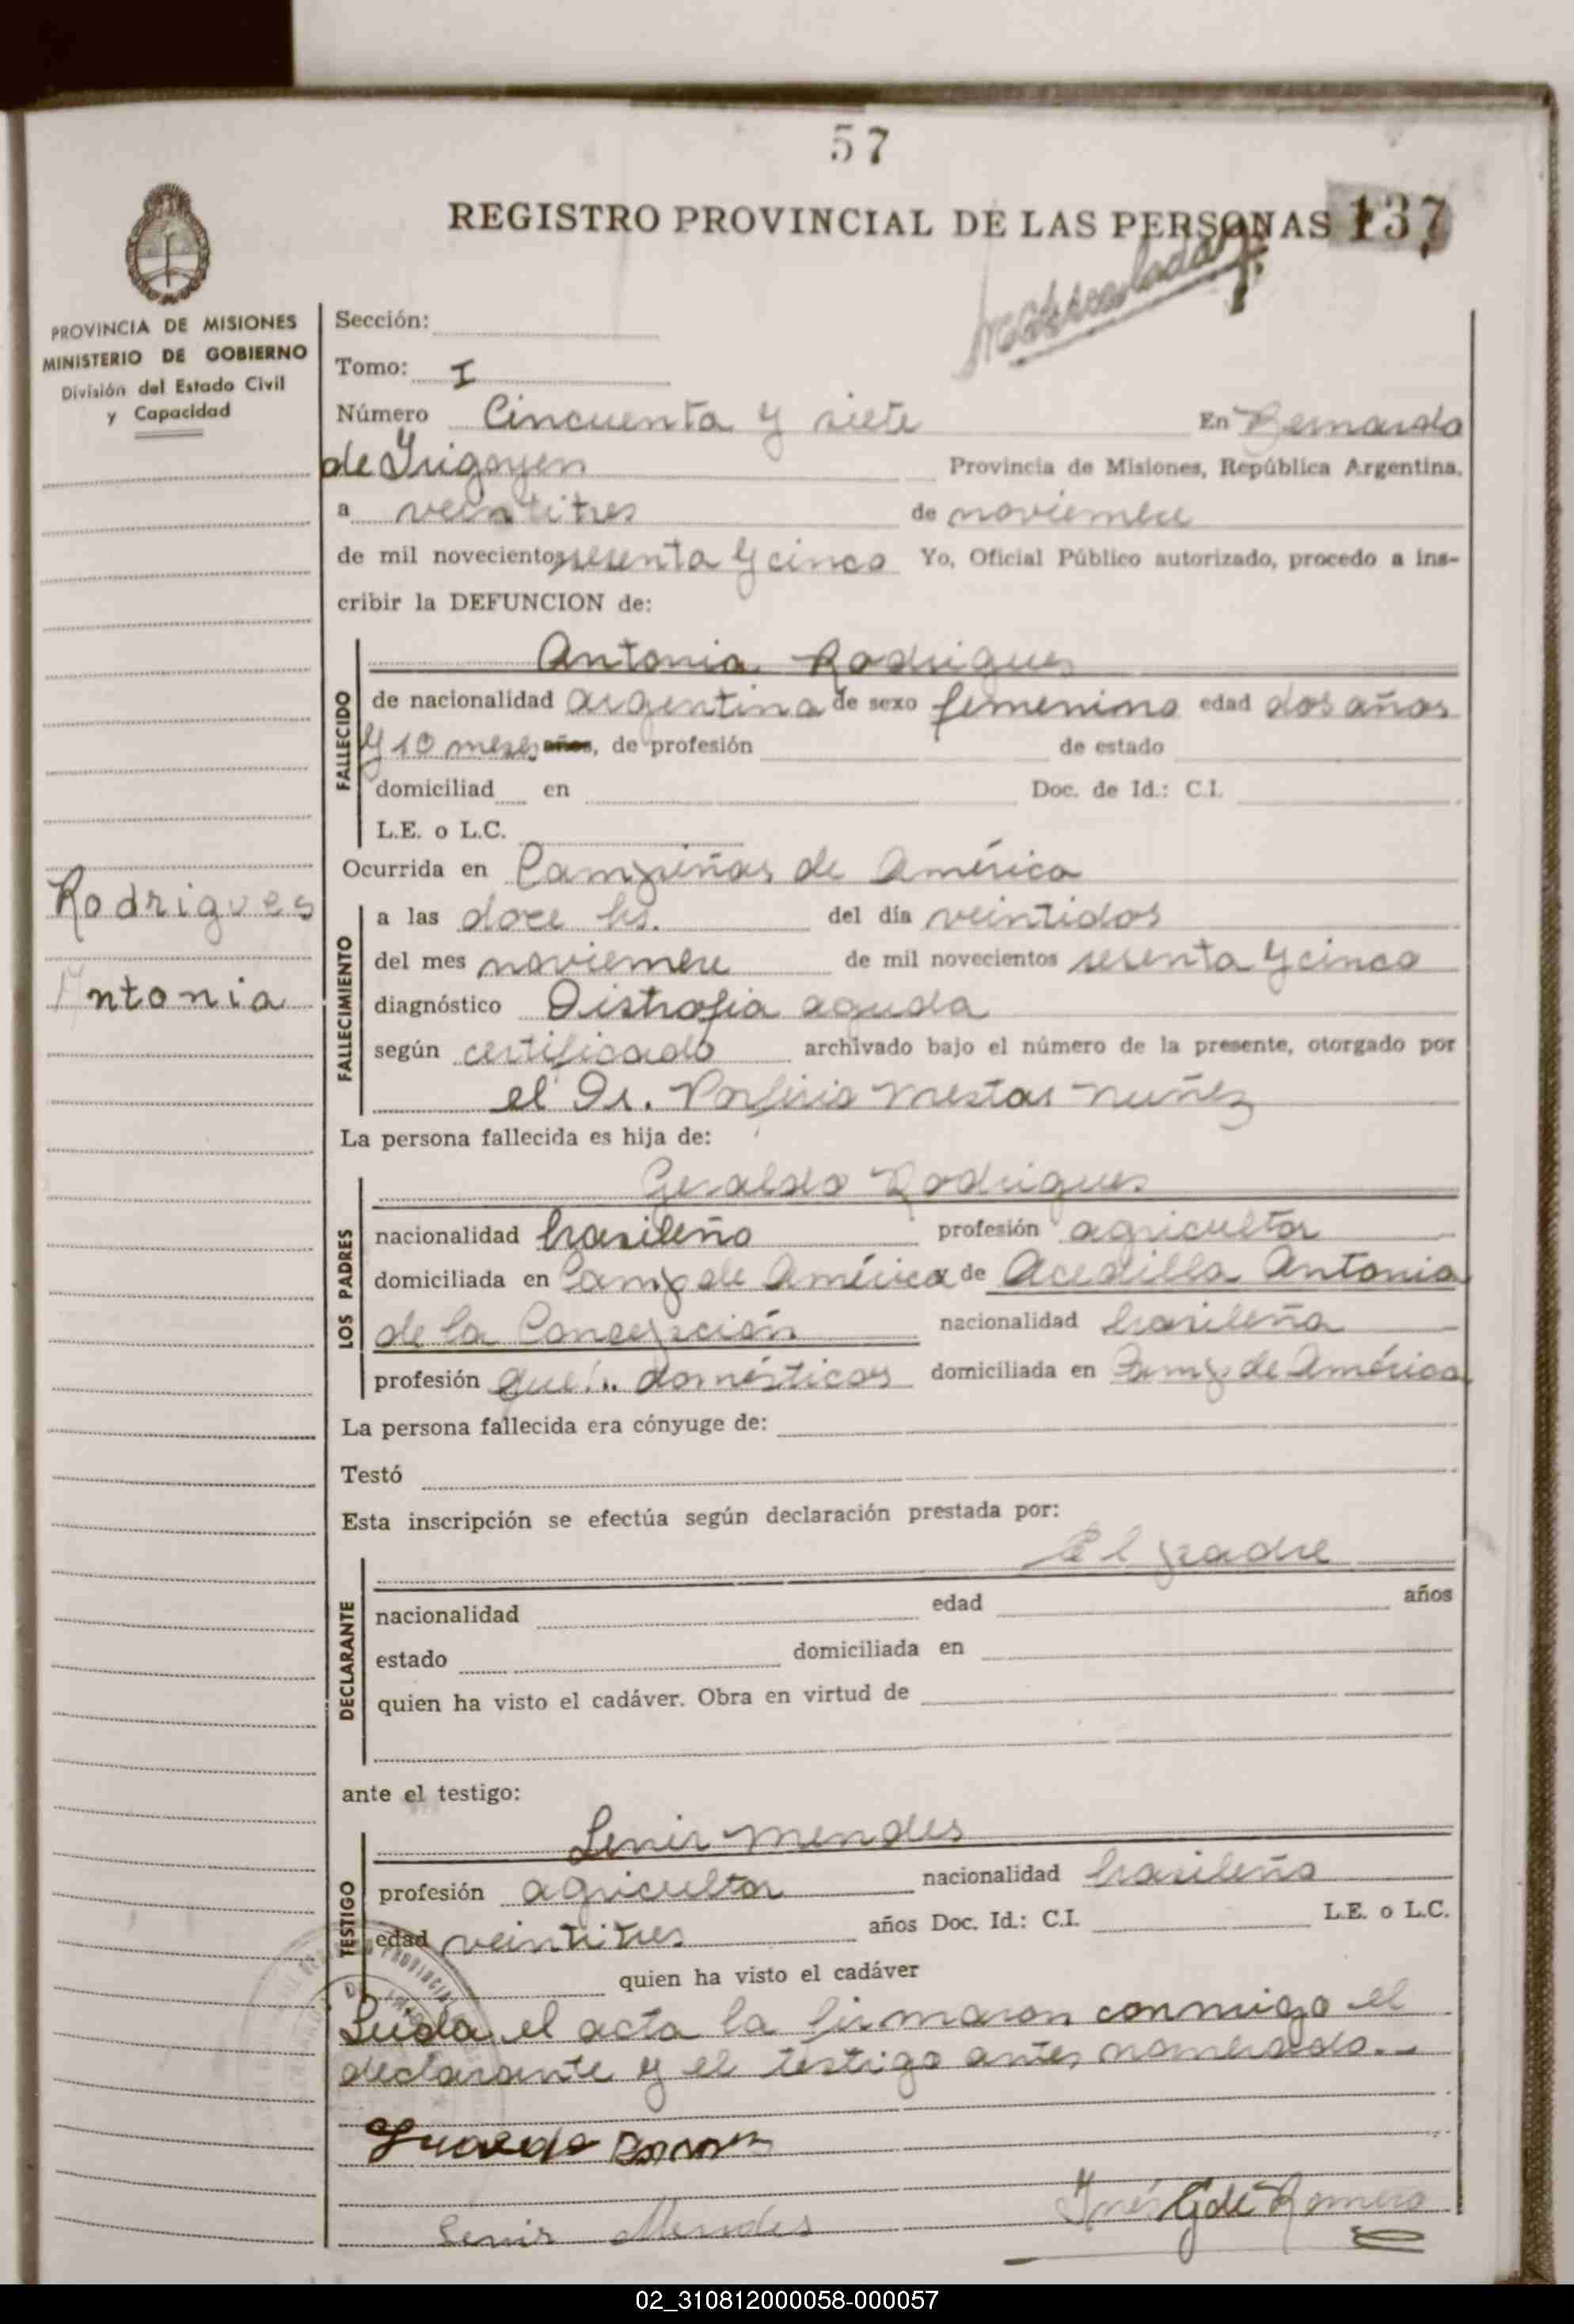 57
REGISTRO PROVINCIAL DE LAS PERSONAS 137
PROVINCIA DE MISIONES
MINISTERIO DE GOBIERNO
División del Estado Civil
y Capacidad
Sección:
Tomo: I
Número Cincuenta y siete En Bernardo
de Irigoyen Provincia de Misiones, República Argentina,
a veintitres de noviembre
de mil novecientos sesenta y cinco Yo, Oficial Público autorizado, procedo a ins-
cribir la DEFUNCION de:
FALLECIDO
Antonia Rodrigues
de nacionalidad argentina de sexo femenino edad dos años
y 10 meses años, de profesión de estado
domiciliad en Doc. de Id.: C.I.
L.E. o L.C.
Ocurrida en Campiñas de América
Rodrigues
Antonia
FALLECIMIENTO
a las doce hs. del día veintidos
del mes noviembre de mil novecientos sesenta y cinco
diagnóstico Distrofia aguda
según certificado archivado bajo el número de la presente, otorgado por
el Dr. Porfirio Mestas Nuñez
La persona fallecida es hija de:
LOS PADRES
Geraldo Rodrigues
nacionalidad brasileño profesión agricultor
domiciliada en Camp de América y de Acedilla Antonia
de la Concepción nacionalidad brasileña
profesión queh. domésticos domiciliada en Camp de América
La persona fallecida era cónyuge de:
Testó
Esta inscripción se efectúa según declaración prestada por:
DECLARANTE
El padre
nacionalidad edad años
estado domiciliada en
quien ha visto el cadáver. Obra en virtud de
ante el testigo:
TESTIGO
Lenir Mendes
profesión agricultor nacionalidad brasileño
edad veintitres años Doc. Id.: C.I. L.E. o L.C.
quien ha visto el cadáver
Leida el acta la firmaron conmigo el
declarante y el testigo antes nombrado.-
Lenir Mendes
Inés G de Romero
02_310812000058-000057